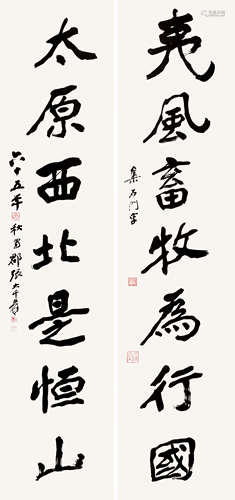 夷風畜牧為行國
集石門字
太原西北是恒山
六十五年秋蜀郡張大千爰